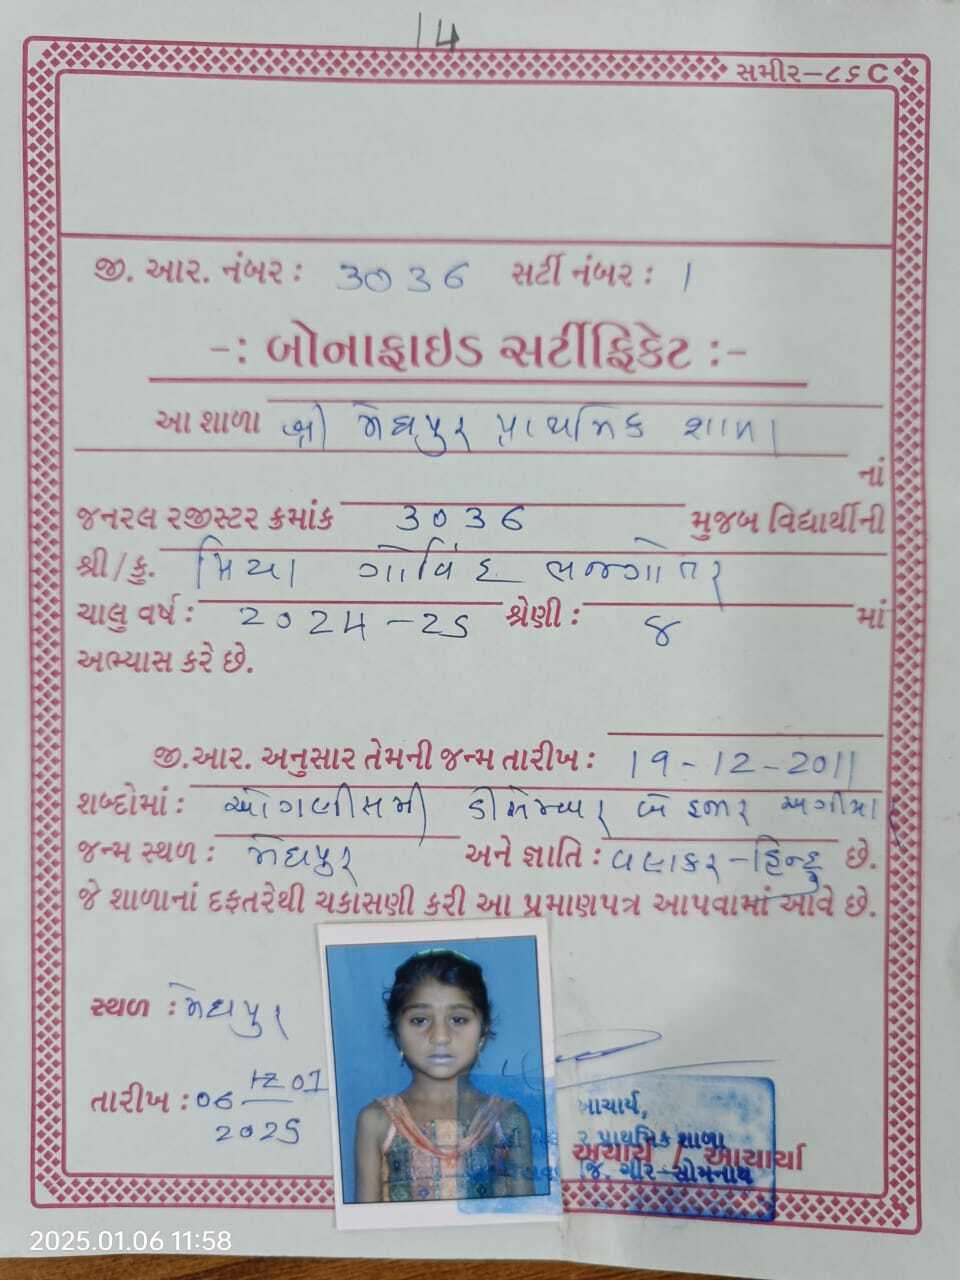 14
સમીર–૮૬ C
જી. આર. નંબર : 3036 સર્ટી નંબર : 1
-: બોનાફાઇડ સર્ટીફિકેટ :-
આ શાળા શ્રી મેઘપુર પ્રાથમિક શાળા
નાં
જનરલ રજીસ્ટર ક્રમાંક 3036 મુજબ વિદ્યાર્થીની
શ્રી / કુ. ગોવિંદ ભજગોતર
ચાલુ વર્ષ : 2024-25 શ્રેણી : ૪ માં
અભ્યાસ કરે છે.
જી.આર. અનુસાર તેમની જન્મ તારીખ : 19-12-2011
શબ્દોમાં : ઓગણીસમી ડીસેમ્બર બે હજાર અગીયાર
જન્મ સ્થળ : મેઘપુર અને જ્ઞાતિ : -હિન્દુ છે.
જે શાળાનાં દફતરેથી ચકાસણી કરી આ પ્રમાણપત્ર આપવામાં આવે છે.
સ્થળ : મેઘપુર
તારીખ : 06 01
2025
આચાર્ય,
પ્રાથમિક શાળા
આચાર્ય / આચાર્યા
જિ. ગીર-સોમનાથ
2025.01.06 11:58